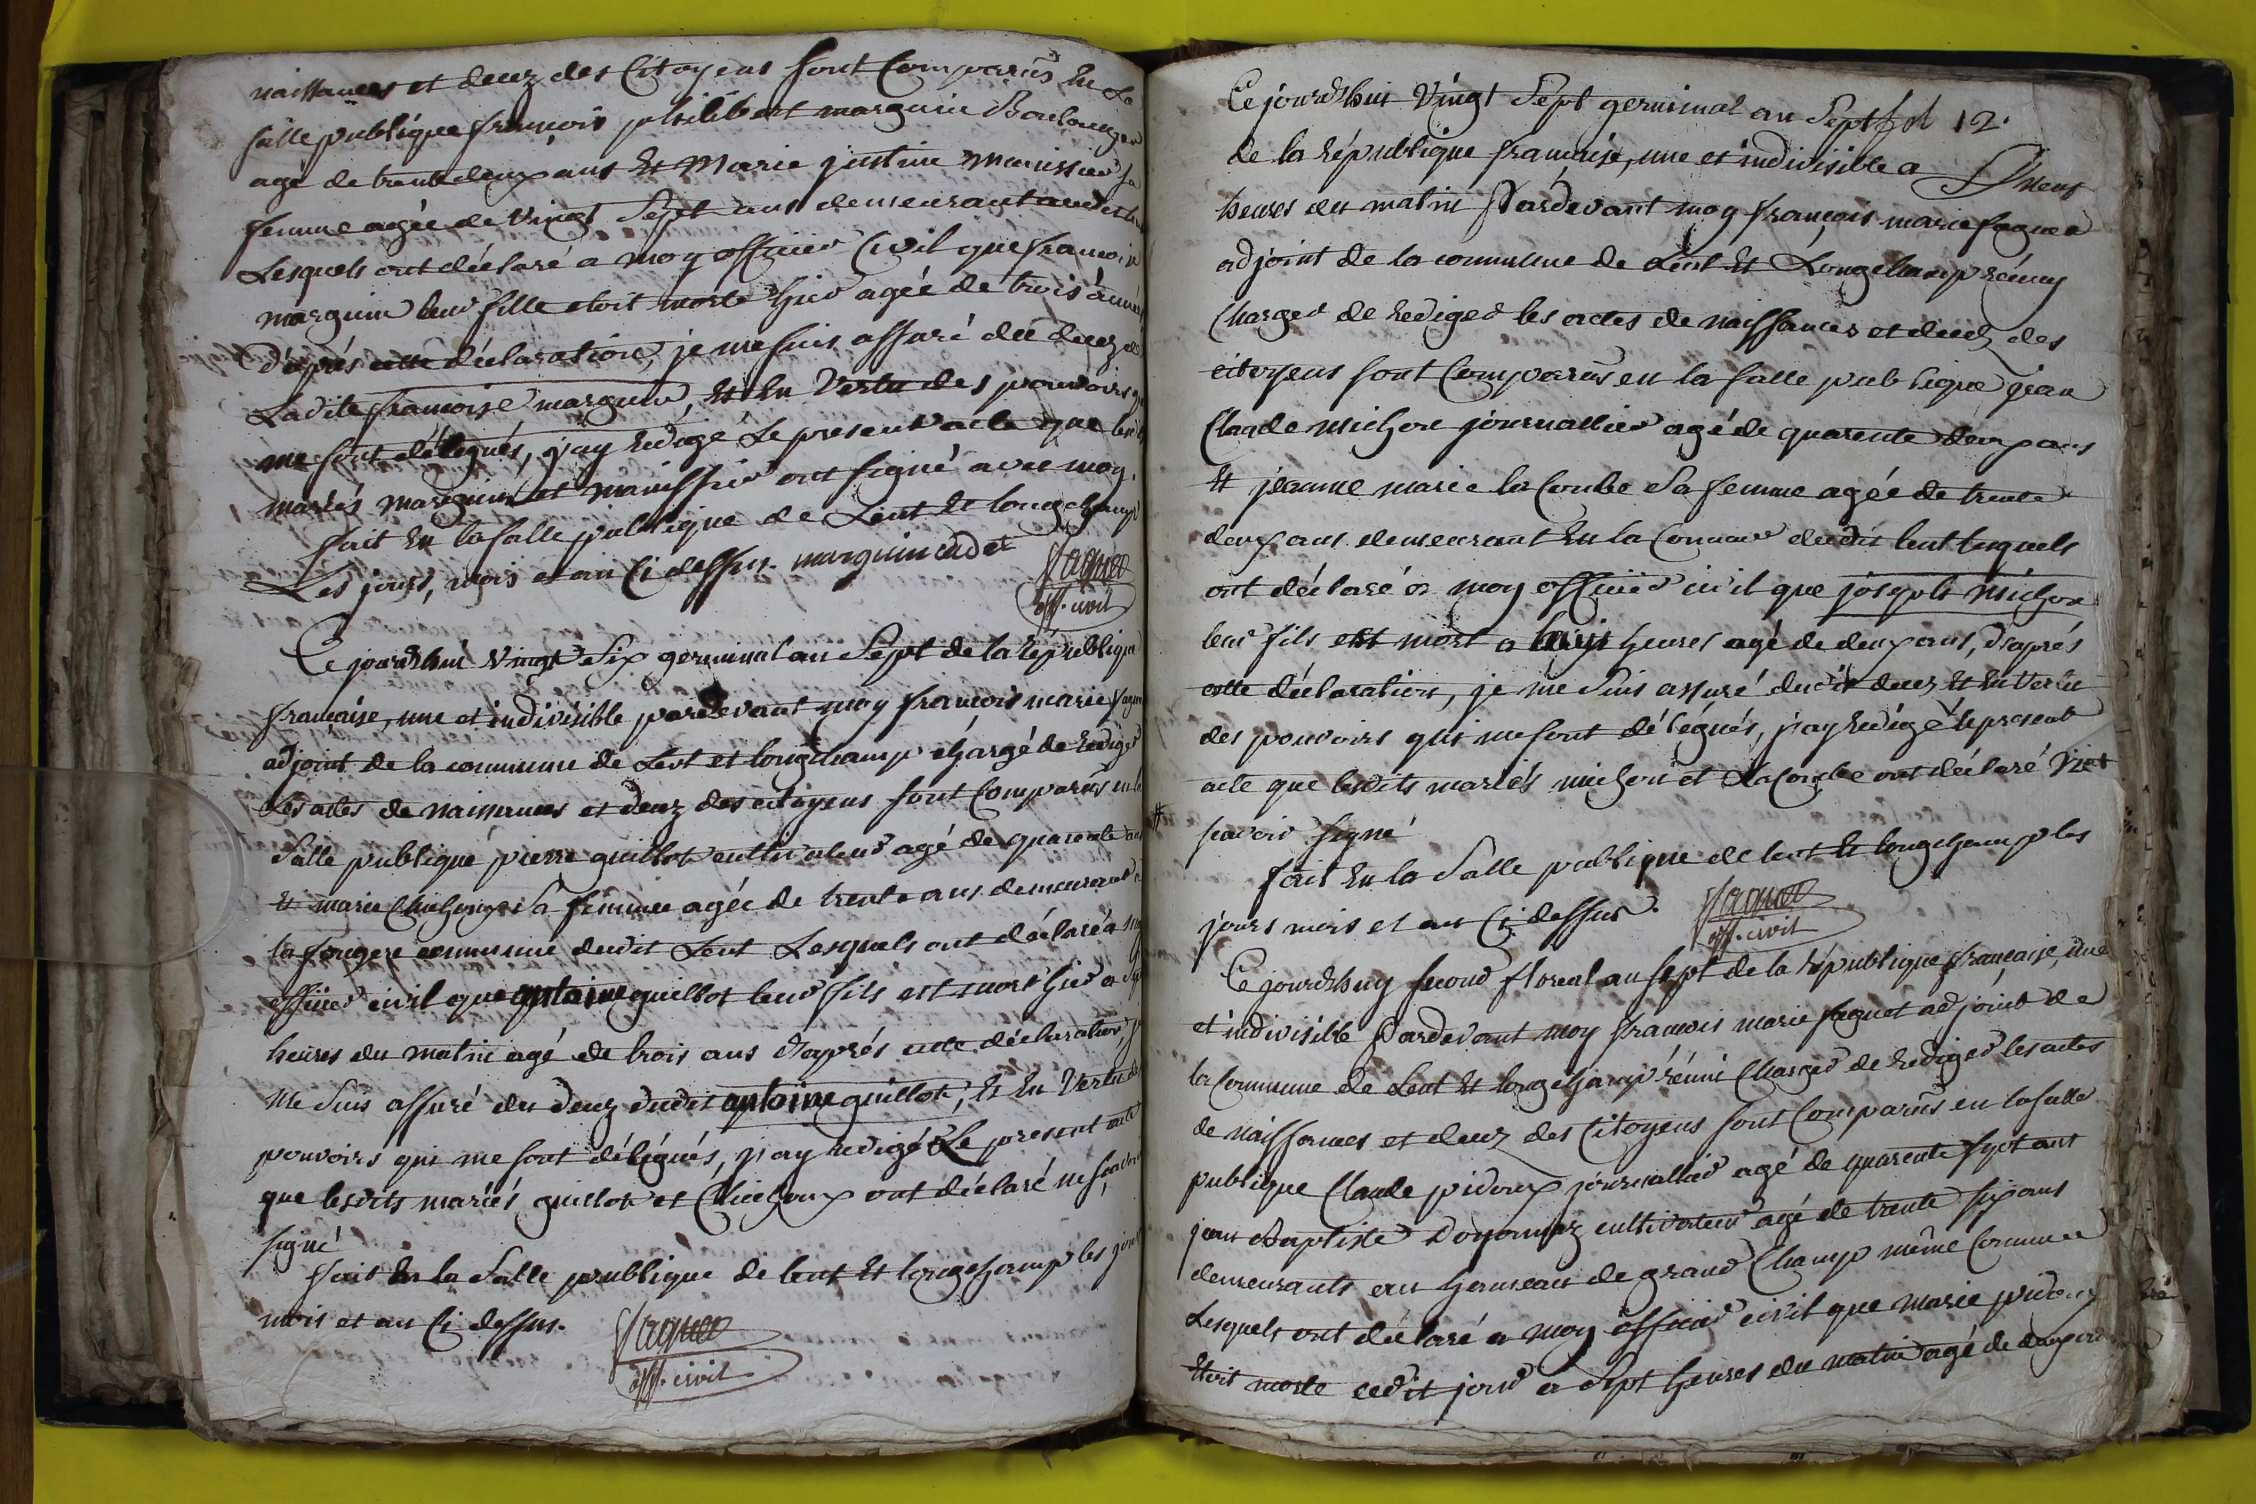 naissances et decez des Citoyens sont Comparus En La
salle publique françois philibert marguin Boulanger
agé de trente deux ans Et Marie justine Manissier sa
femme agée de Vingt Sept ans demeurant audit
Lesquels ont déclaré a moy officier Civil que françoise
marguin leur fille etoit morte hier agée de trois années
D'après cette déclaration, je me suis assuré du decez de
Ladite françoise marguin, Et En Vertu des pouvoirs qui
me sont délégués, j'ay Redigé Le present acte que lesdits
mariés marguin et manissier ont signé avec moy.
fait En la salle publique de Lent Et longchamp
Les jours, mois et an Ci dessus. marguin cadet faguet
off. civil
Ce jourd'hui Vingt Six germinal an Sept de la République
française, une et indivisible pardevant moy françois marie faguet
adjoint de la commune de Lent et longchamp chargé de Rediger
Les actes de naissances et decez des citoyens sont Comparus en la
Salle publique pierre guillot cultivateur agé de quarente ans
Et marie Chichoux Sa femme agée de trente ans demeurant a
la fougere commune dudit Lent Lesquels ont déclaré a moy
officier civil que antoine guillot leur fils est mort hier a
heures du matin agé de trois ans D'après cette déclaration, je
Me Suis assuré du decez dudit antoine guillot, Et En Vertu des
pouvoirs qui me sont délégués, j'ay Redigé Le present acte
que lesdits mariés guillot et Chichoux ont déclaré ne sçavoir
signé
fait En la Salle publique de lent Et longchamp les jours
mois et an Ci dessus. faguet
off. civil
Ce jourd'hui Vingt Sept germinal an Sept fol 12.
de la République française, une et indivisible a neuf
heures du matin Pardevant moy françois marie faguet
adjoint de la commune de Lent Et Longchamp réuny
Charger de Rediger les actes de naissances et decez des
citoyens sont Comparus en la salle publique jean
Claude michon journallier agé de quarente deux ans
Et jeanne marie la Combe Sa femme agée de trente
deux ans demeurant En la Commune dudit lent lesquels
ont déclaré a moy officier civil que joseph michon
leur fils est mort a huit heures agé de deux ans, D'après
cette déclaration, je me Suis assuré dudit decez Et En Vertu
des pouvoirs qui me sont délégués, j'ay Redigé le present
acte que lesdits mariés michon et Lacombe ont déclaré N'et
savoir signé
fait En la Salle publique de lent Et longchamp les
jours mois et an Ci dessus. faguet
off. civil
Ce jourd'huy second floreal an sept de la République française, une
et indivisible Pardevant moy françois marie faguet adjoint de
la Commune de Lent Et longchamp réuni Charger de Rediger les actes
de naissances et decez des Citoyens sont Comparus en la salle
publique Claude pidoux journallier agé de quarente sept ans
jean Baptiste Doyonnaz cultivateur agé de trente six ans
demeurants au hameau de grand Champ même Commune
Lesquels ont déclaré a moy officier civil que marie pidoux
Etoit morte cedit jour a Sept heures du matin agé de